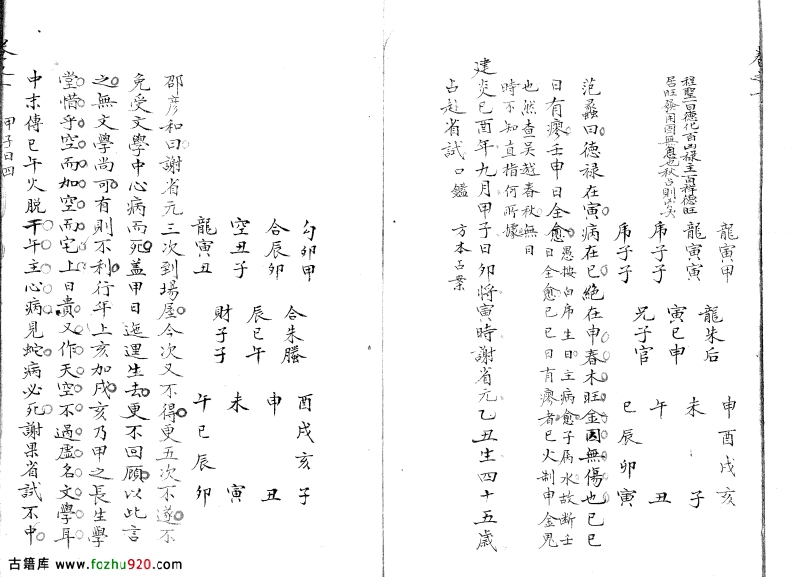 卷之一
程聖百德化百凶禄主百祥德旺
居旺發用固無慮也秋占則災矣
龍寅甲
龍寅寅
乕子子
乕子子
龍朱后
寅巳申
兄子官
申酉戌亥
未　　子
午　　丑
巳辰卯寅
范蠡曰德禄在寅病在巳絶在申春木旺金囚無傷也巳巳
日有瘳壬申日全愈
愚按白乕生日主病愈子屬水故断壬
日全愈巳巳日有瘳者巳火制申金鬼
也然查吴越春秋無日
時不知直指何所據
建炎已酉年九月甲子日卯將寅時謝省元乙丑生四十五歳
占赴省試　口鑑　方本占業
勾卯甲
合辰卯
空丑子
龍寅丑
合朱螣
辰巳午
財子子
酉戌亥子
申　　丑
未　　寅
午巳辰卯
邵彦和曰謝省元三次到場屋今次又不得更五次不遂不
免受文學中心病而死蓋甲日迤邐生去更不回顧以此言
之無文學尚可有則不利行年上亥加戌亥乃甲之長生學
堂惜乎空而加空而宅上日貴又作天空不過虚名文學耳
中末傳巳午火脱干午主心病見蛇病必死謝果省試不中
甲子日四
古籍库 www.fozhu920.com